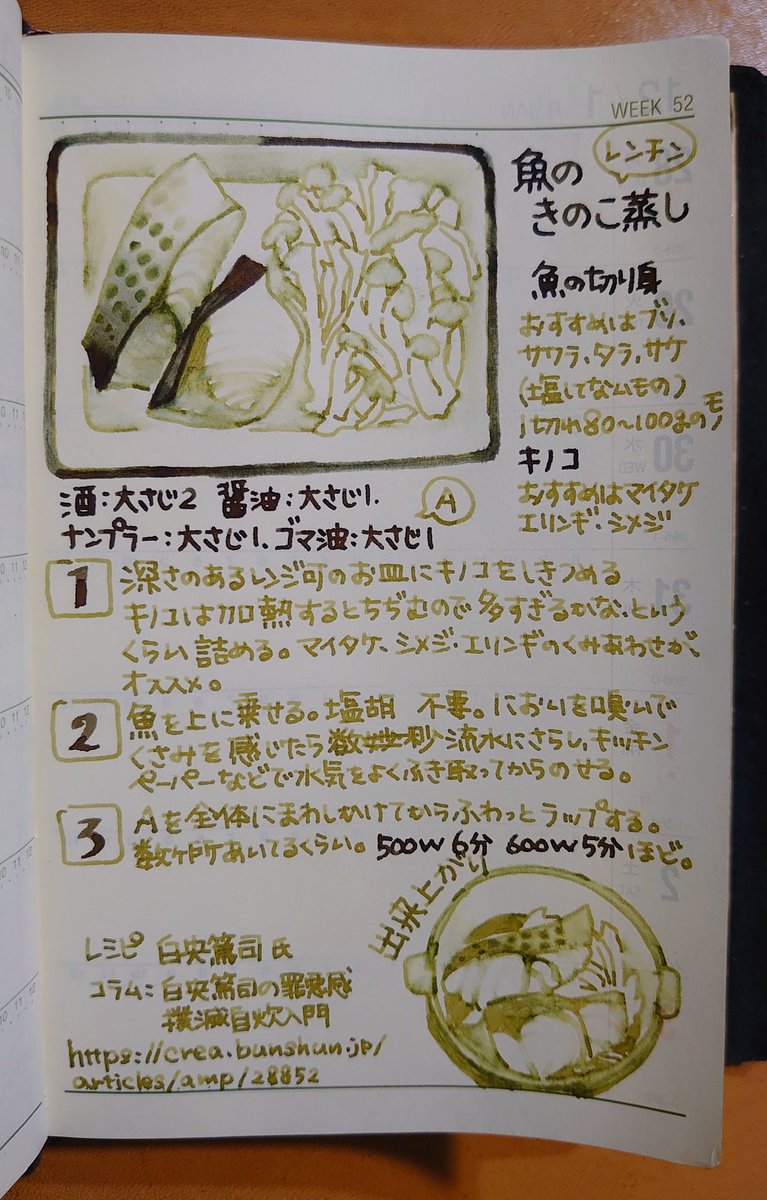 WEEK 52
レンチン
魚の
きのこ蒸し
魚の切り身
おすすめはブリ、
サワラ、タラ、サケ
(塩してないもの)
1切れ80〜100gのモノ
キノコ
おすすめはマイタケ
エリンギ・シメジ
酒:大さじ2 醤油:大さじ1.
ナンプラー:大さじ1、ゴマ油:大さじ1
A
1 深さのあるレンジ可のお皿にキノコをしきつめる
キノコは加熱するとちぢむので多すぎるかな、という
くらい詰める。マイタケ、シメジ・エリンギのくみあわせが、
オススメ。
2 魚を上に乗せる。塩胡 不要。においを嗅いで
くさみを感じたら数秒流水にさらし、キッチン
ペーパーなどで水気をよくふき取ってからのせる。
3 Aを全体にまわしかけてからふわっとラップする。
数ヶ所あいてるくらい。500W 6分 600W 5分ほど。
出来上がり
レシピ 白央篤司氏
コラム:白央篤司の罪悪感
撲滅自炊入門
https://crea.bunshun.jp/
articles/amp/28852